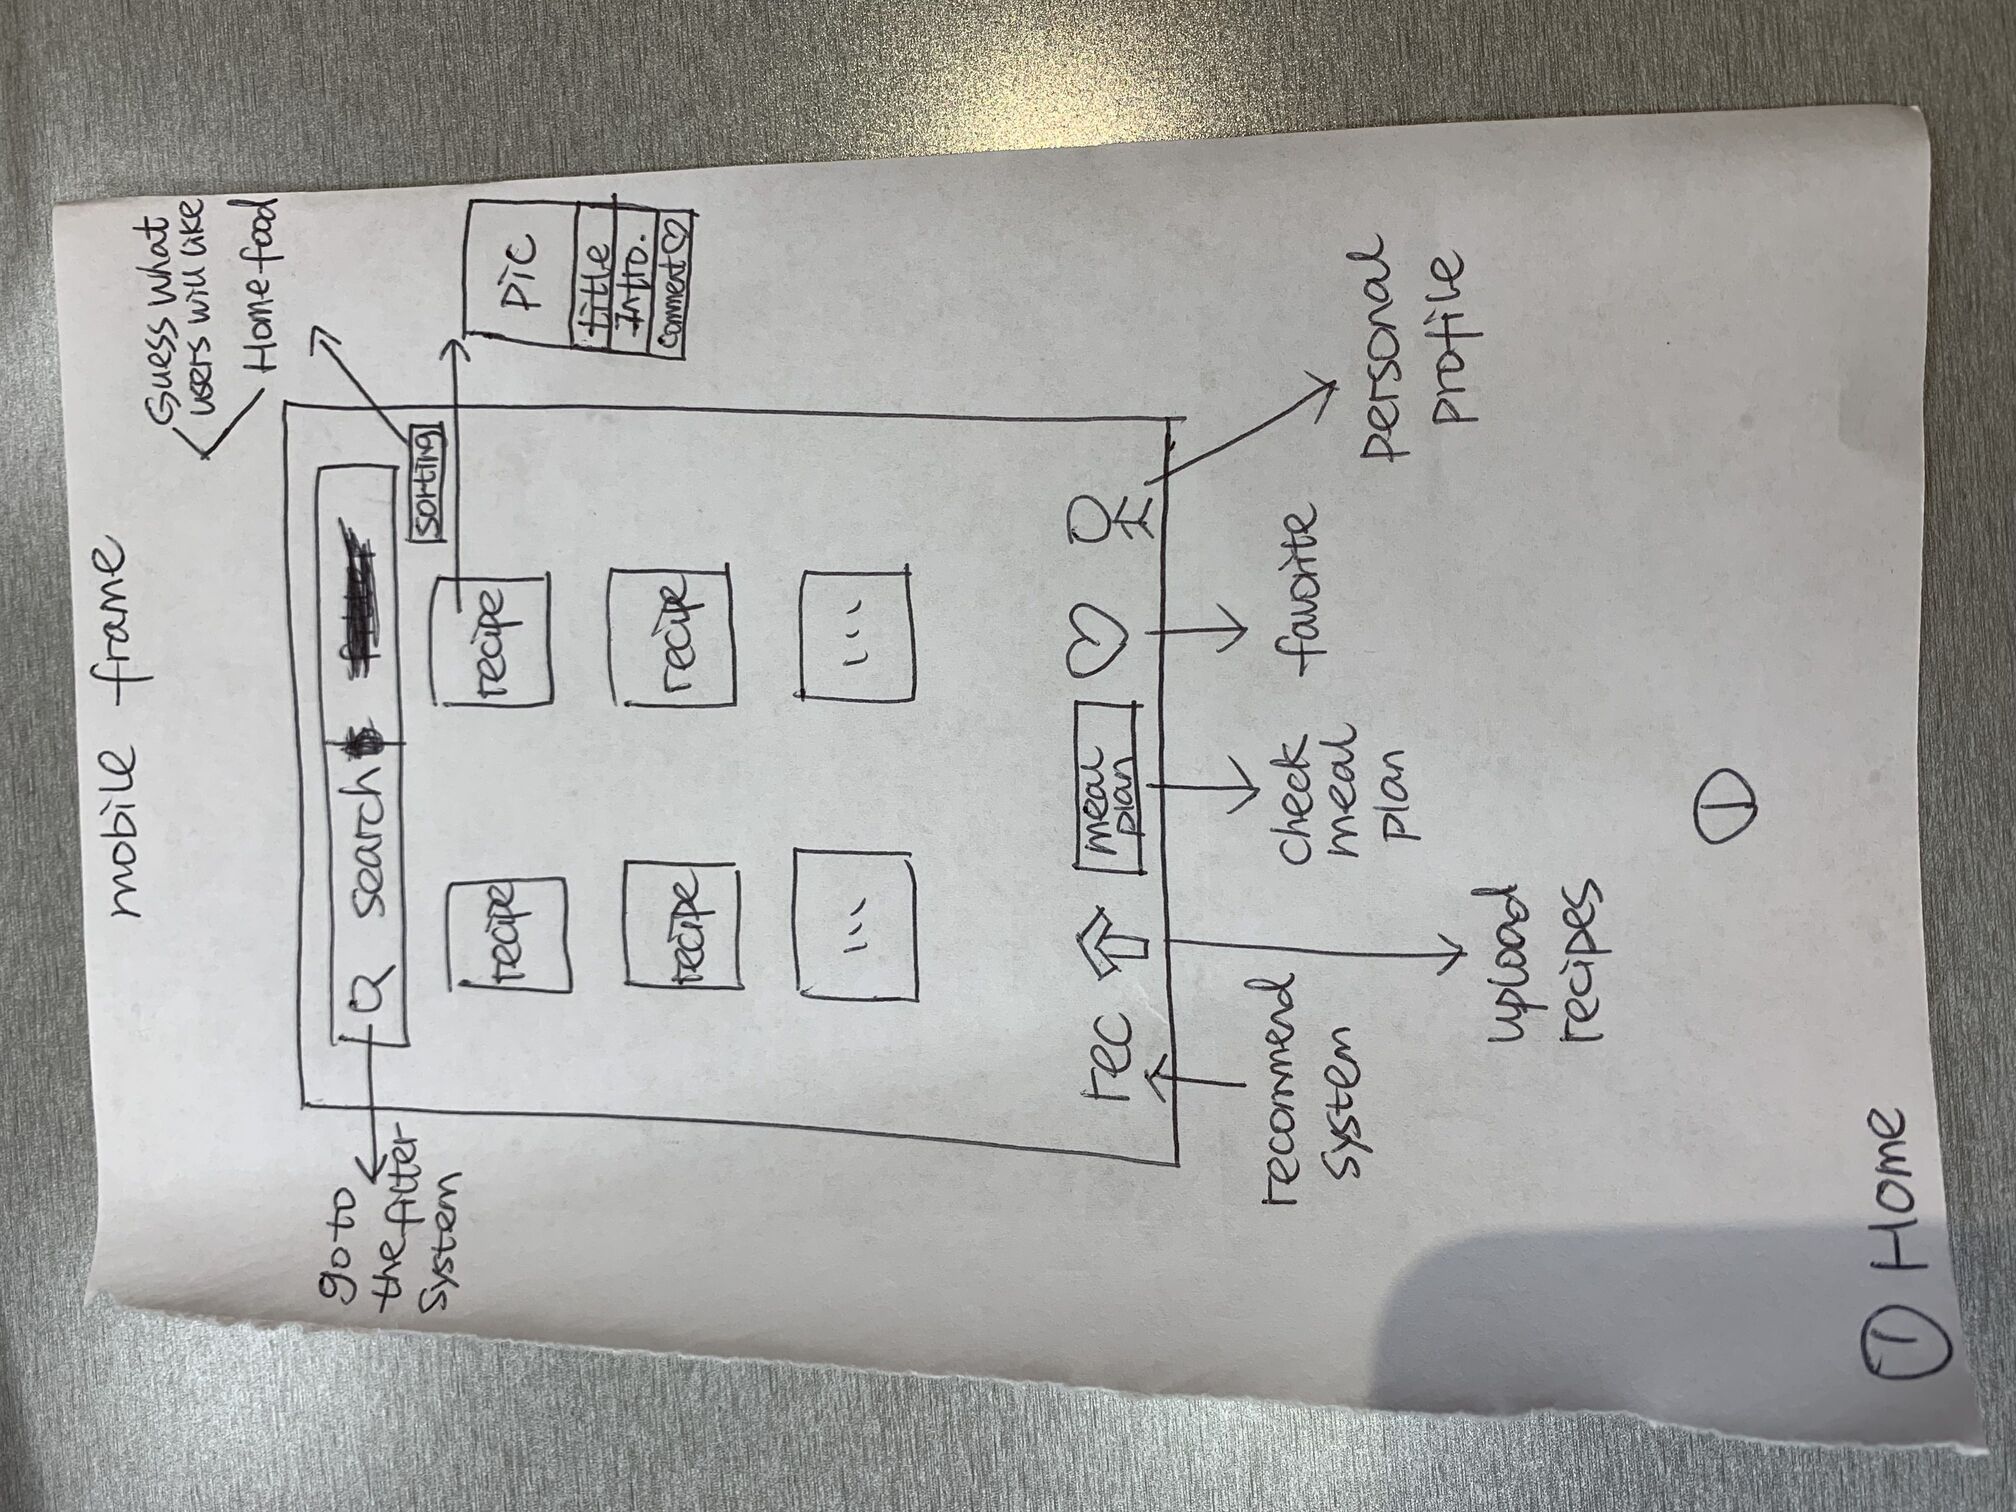 mobile frame
Guess what
users will like
Home food
go to
the filter
system
search
sorting
recipe
recipe
pic
title
Intro.
comment
recipe
recipe
...
...
rec
meal
plan
recommend
system
check
meal
plan
favorite
personal
profile
upload
recipes
①
① Home